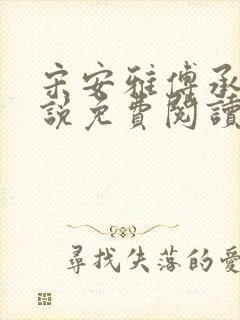 宋安雅傅承
說免費閱讀
尋找失落的愛